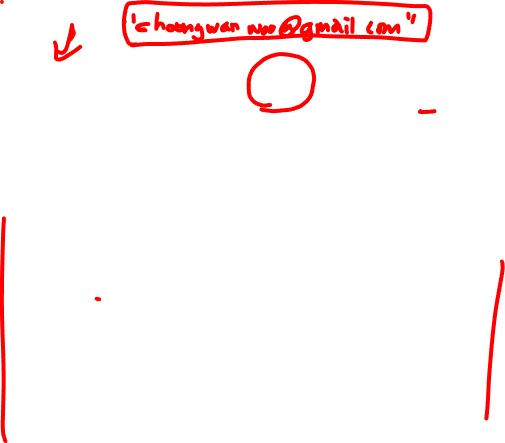 "choongwan woo@gmail com"